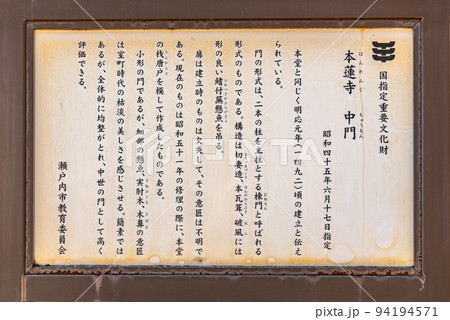 国指定重要文化財
ほんれんじ ちゅうもん
本蓮寺 中門
昭和四十五年六月十七日指定
本堂と同じく明応元年(一四九二)頃の建立と伝え
られている。
門の形式は、二本の柱を主柱とする棟門と呼ばれる
形式のものである。構造は切妻造、本瓦葺、破風には
形の良い鰭付蕪懸魚を吊る。
扉は建立時のものは欠失して、その意匠は不明で
ある。現在のものは昭和五十一年の修理の際に、本堂
の桟唐戸を模して作成したものである。
小形の門であるが、細部の懸魚、実肘木、木鼻の意匠
は室町時代の枯淡の美しさを感じさせる。簡素では
あるが、全体的に均整がとれ、中世の門として高く
評価できる。
瀬戸内市教育委員会
PIXTA
94194571